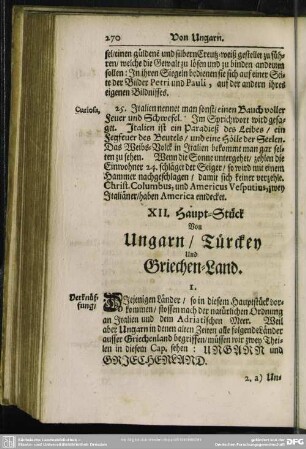 270 Von Ungarn.
sel/einen güldene und silbern Creutz-weiß gestellet zu füh-
ren/ welche die Gewalt zu lösen und zu binden andeuten
sollen: In ihren Siegeln bedienen sie sich auf einer Sei-
te der Bilder Petri und Pauli, auf der andern ihres
eigenen Bildnisses.
Curiosa, 25. Italien nennet man sonst: einen Bauch voller
Feuer und Schwefel. Im Sprichwort wird gesa-
get. Italien ist ein Paradieß des Leibes/ ein
Fegfeuer des Beutels/ und eine Hölle der Seelen.
Das Weibs-Volck in Italien bekommt man gar sel-
ten zu sehen. Wenn die Sonne untergehet/ zehlen die
Einwohner 24. schläget der Seiger/ so wird mit einem
Hammer nachgeschlagen/ damit sich keiner verzehle.
Christ. Columbus, und Americus Vesputius, zwey
Italiäner/haben America entdecket.
XII. Haupt-Stück
Von
Ungarn/ Türckey
Und
Griechen-Land.
1.
Verknüp-
fung/
DIejenigen Länder/ so in diesem Hauptstück vor-
kommen/ stossen nach der natürlichen Ordnung
an Italien und dem Adriatischen Meer. Weil
aber Ungarn in denen alten Zeiten alle folgende Länder
ausser Griechenland begriffen/ müssen wir zwey Thei-
len in diesem Cap. sehen: UNGARN und
GRIECHENLAND.
2. a) Un-